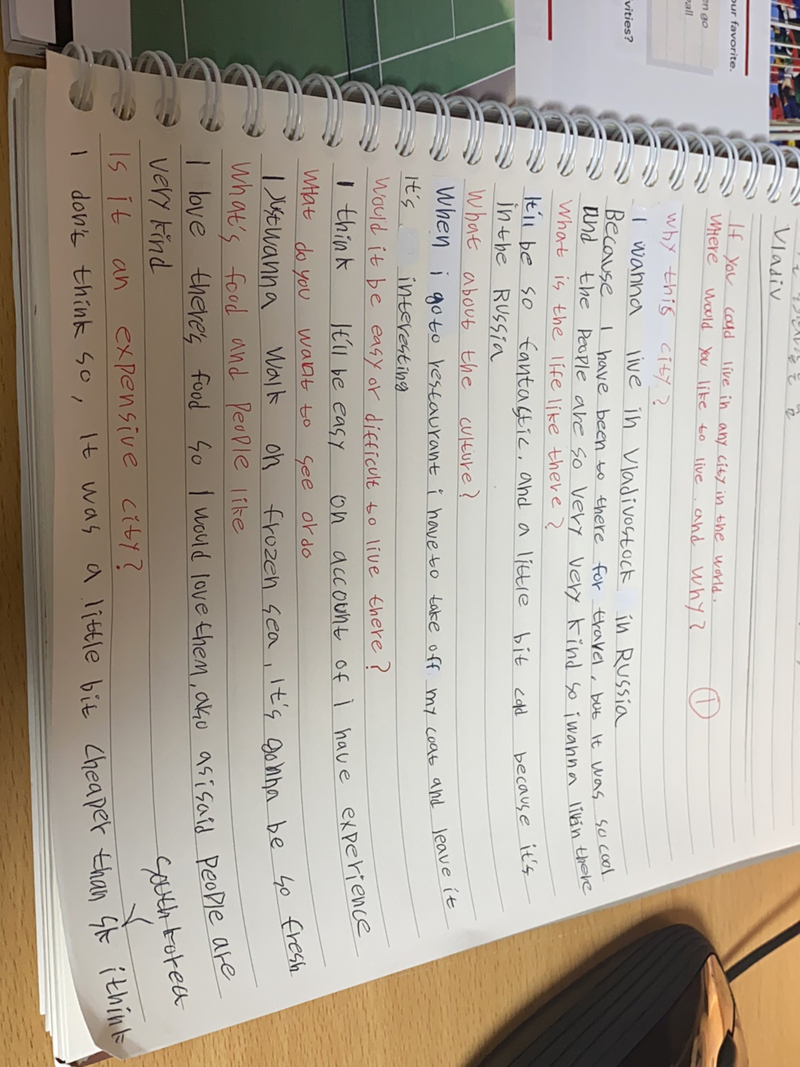 our favorite.
en go
all
vities?
Vladiv
If you could live in any city in the world.
Where would you like to live. and why? ①
why this city?
I wanna live in Vladivostock in Russia
Because I have been to there for travel, but it was so cool
and the people are so very very kind so i wanna livin there
What is the life like there?
It'll be so fantastic. and a little bit cold because it's
in the Russia
What about the culture?
When i go to restaurant i have to take off my coat and leave it
It's interesting
Would it be easy or difficult to live there?
I think It'll be easy on account of i have experience
What do you want to see or do
I just wanna walk on frozen sea, It's gonna be so fresh
What's food and people like
I love there's food so I would love them, also as i said people are
very kind
Is it an expensive city?
South korea
I don't think so, It was a little bit cheaper than Sk i think